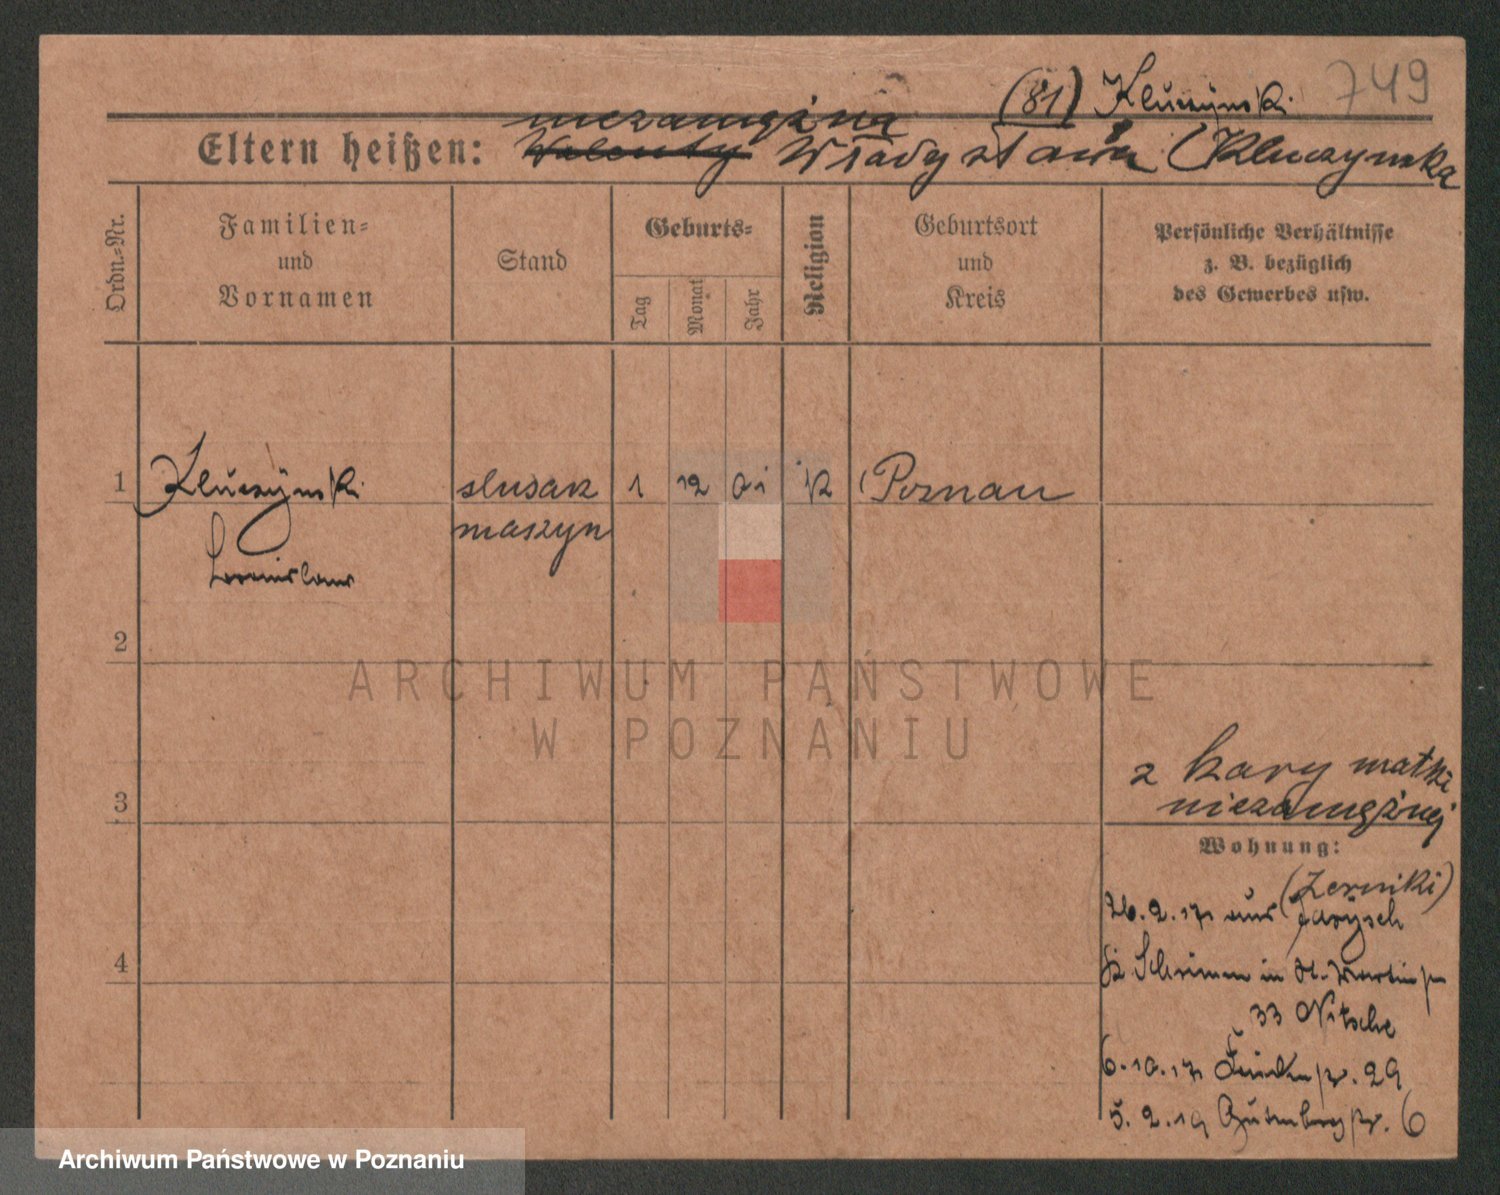 (81) Kluczynski 749
niezamężna
Eltern heißen: Walenty Władysława Kluczynska
Ordn.-Nr.
Familien-
und
Vornamen
Stand
Geburts-
Tag
Monat
Jahr
Religion
Geburtsort
und
Kreis
Persönliche Verhältnisse
z. B. bezüglich
des Gewerbes usw.
1 Kluczynski slusarz 1 12 01 k Poznan
maszyn
2
ARCHIWUM PAŃSTWOWE
W POZNANIU
z kary matki
niezamężnej
3
Wohnung:
(Zerniki)
26.2.17 aus Jarysch
4
Kr Schrimm in St. Martinstr
33 Nitsche
6.10.17 29
5.2.19 Gutenbergstr. 6
Archiwum Państwowe w Poznaniu